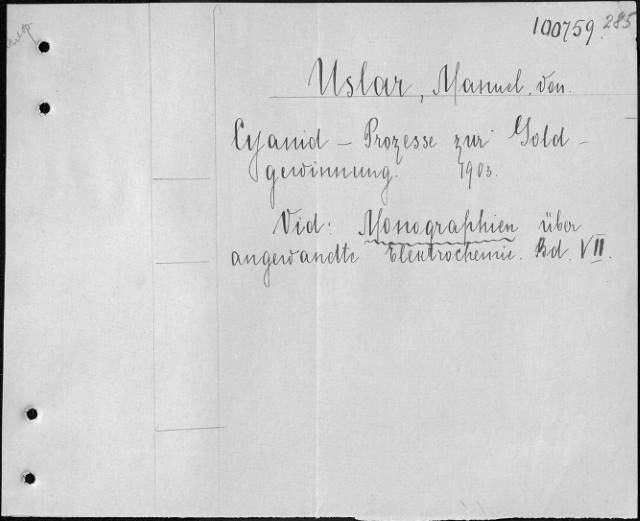 100759. 285
Uslar, Manuel, von.
Cyanid – Prozesse zur Gold –
gewinnung. 1903.
Vid: Monographien über
angewandte Elektrochemie. Bd. VII.